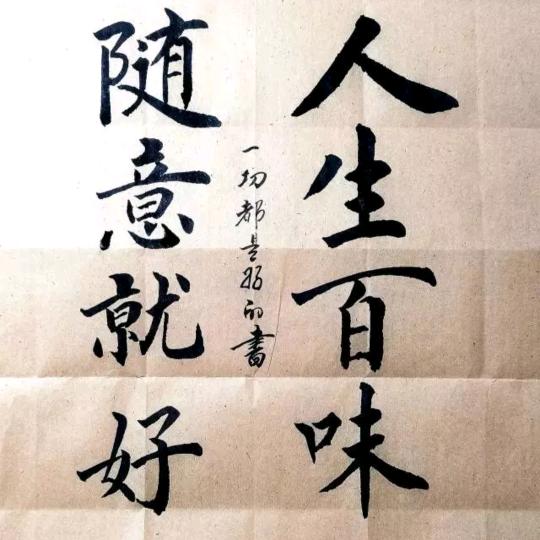 人生百味
一切都是好的書
随意就好